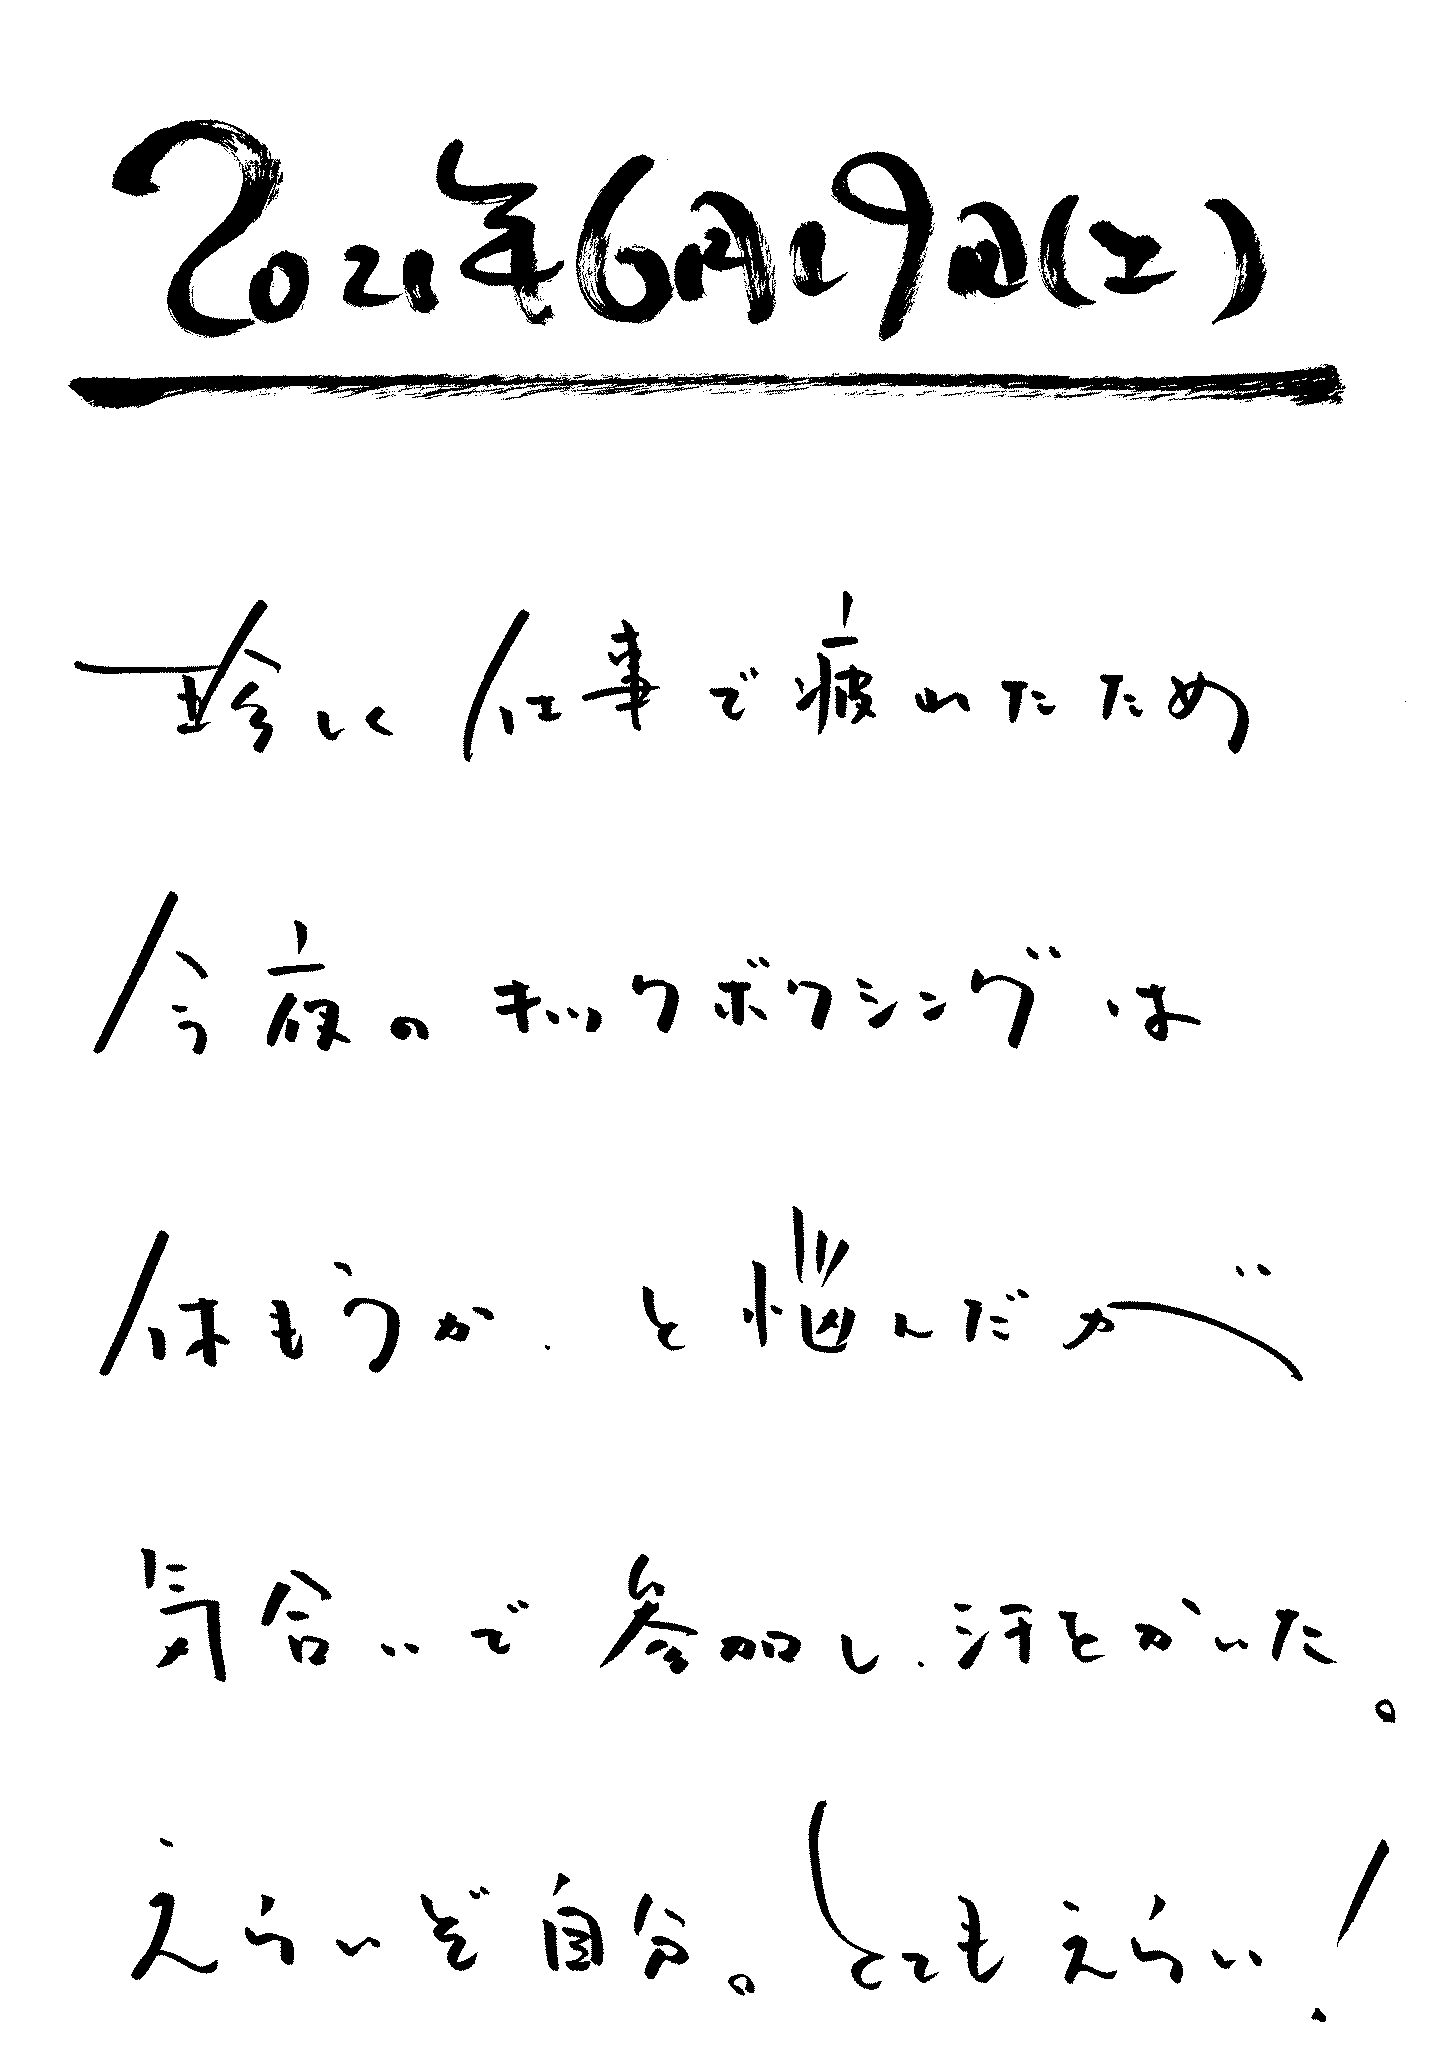 2021年6月19日(土)
珍しく仕事で疲れたため
今夜のキックボクシングは
休もうか、と悩んだが
気合いで参加し、汗をかいた。
えらいぞ自分。とてもえらい!